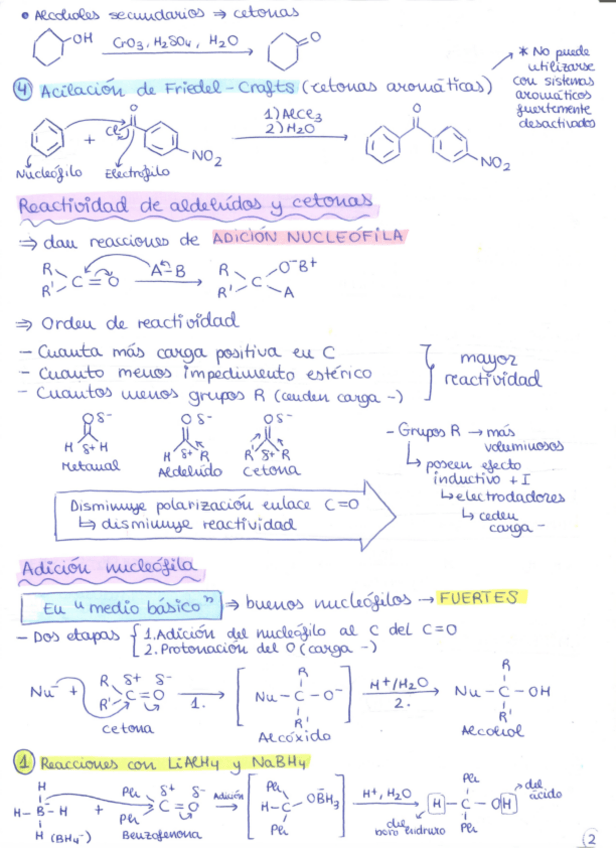 • Alcoholes secundarios ⇒ cetonas
OH
CrO3, H2SO4, H2O
O
④ Acilación de Friedel-Crafts (cetonas aromáticas)
* No puede
utilizarse
con sistemas
aromáticos
fuertemente
desactivados
+
Cl
O
NO2
1) AlCl3
2) H2O
O
NO2
Nucleófilo
Electrófilo
Reactividad de aldehídos y cetonas
⇒ dan reacciones de ADICIÓN NUCLEÓFILA
R
R'
C = O
A-B
R
R'
C
O⁻B⁺
A
⇒ Orden de reactividad
- Cuanta más carga positiva en C
- Cuanto menos impedimento estérico
- Cuantos menos grupos R (ceden carga -)
mayor
reactividad
O δ-
H δ+ H
Metanal
O δ-
H δ+ R
Aldehído
O δ-
R δ+ R
Cetona
- Grupos R → más
voluminosos
↳ poseen efecto
inductivo + I
↳ electrodadores
↳ ceden
carga -
Disminuye polarización enlace C=O
↳ disminuye reactividad
Adición nucleófila
En "medio básico" ⇒ buenos nucleófilos → FUERTES
- Dos etapas { 1. Adición del nucleófilo al C del C=O
2. Protonación del O (carga -)
Nu⁻ +
R
R'
δ+ δ-
C = O
1.
cetona
R
Nu - C - O⁻
R'
Alcóxido
H+/H2O
2.
R
Nu - C - OH
R'
Alcohol
① Reacciones con LiAlH4 y NaBH4
H
H - B⁻ - H
H (BH4⁻)
+
Ph
Ph
δ+ δ-
C = O
Benzofenona
Adición
Ph
H - C - OB̄H3
Ph
H+, H2O
Ph
H - C - OH
Ph
del
borohidruro
del
ácido
2